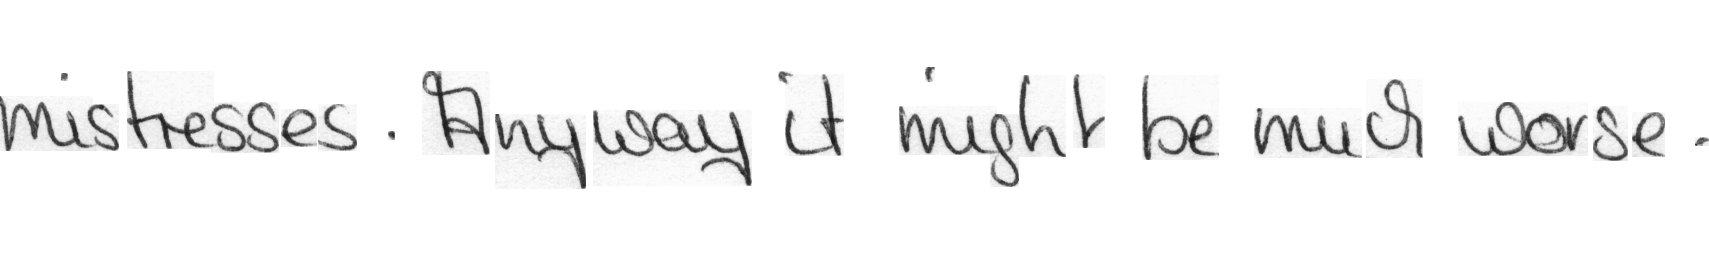 mistresses. Anyway it might be much worse.